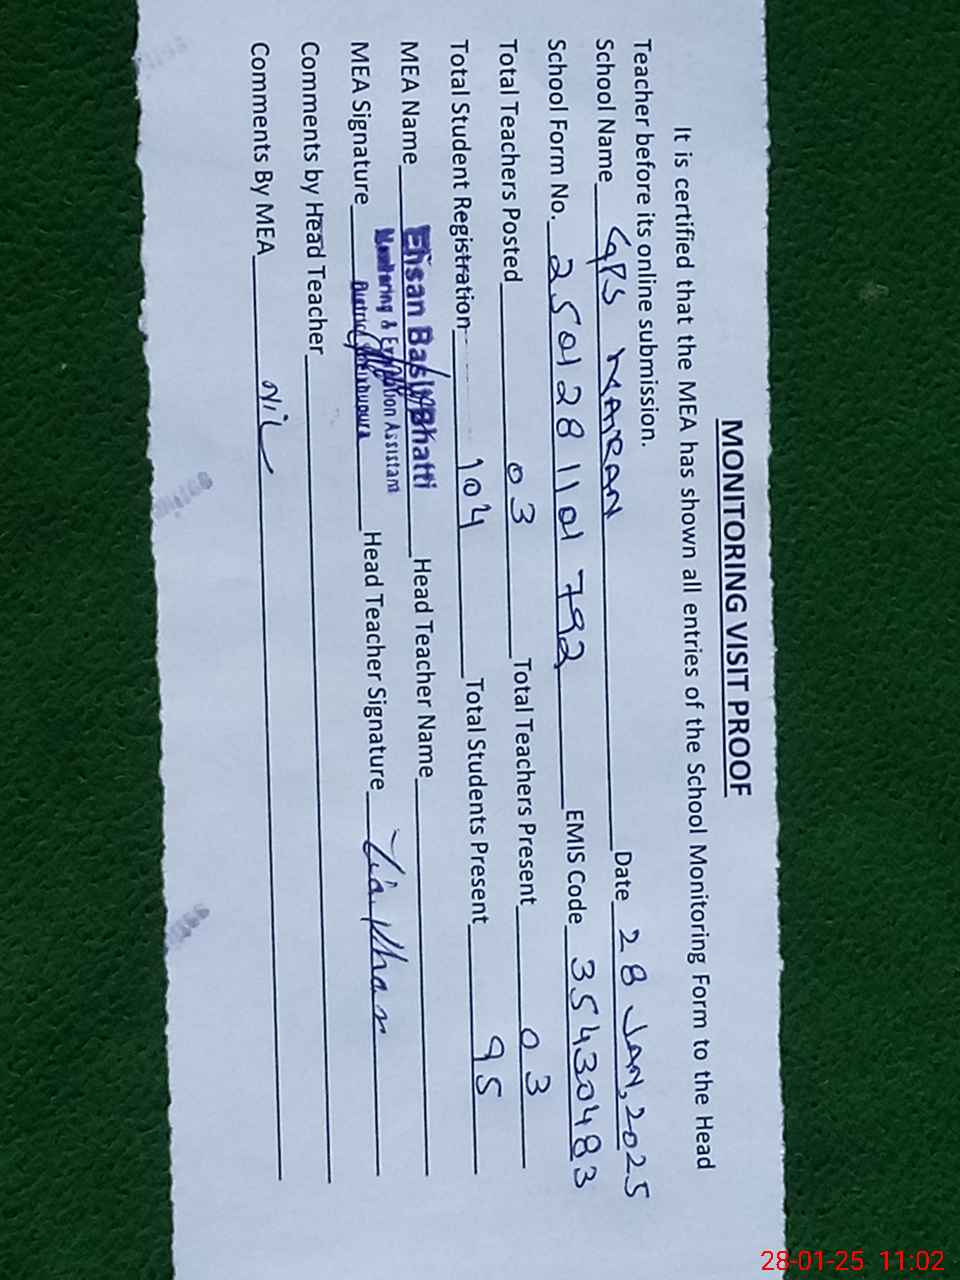 MONITORING VISIT PROOF
It is certified that the MEA has shown all entries of the School Monitoring Form to the Head
Teacher before its online submission.
School Name GPS MAIRAN Date 28 JAN, 2025
School Form No. 2501281101792 EMIS Code 35430483
Total Teachers Posted 03 Total Teachers Present 03
Total Student Registration 104 Total Students Present 95
MEA Name Ehsan Basir Bhatti Head Teacher Name
Monitoring & Evaluation Assistant
MEA Signature District Sheikhupura Head Teacher Signature Zia Khan
Comments by Head Teacher
Comments By MEA Nil
28-01-25 11:02